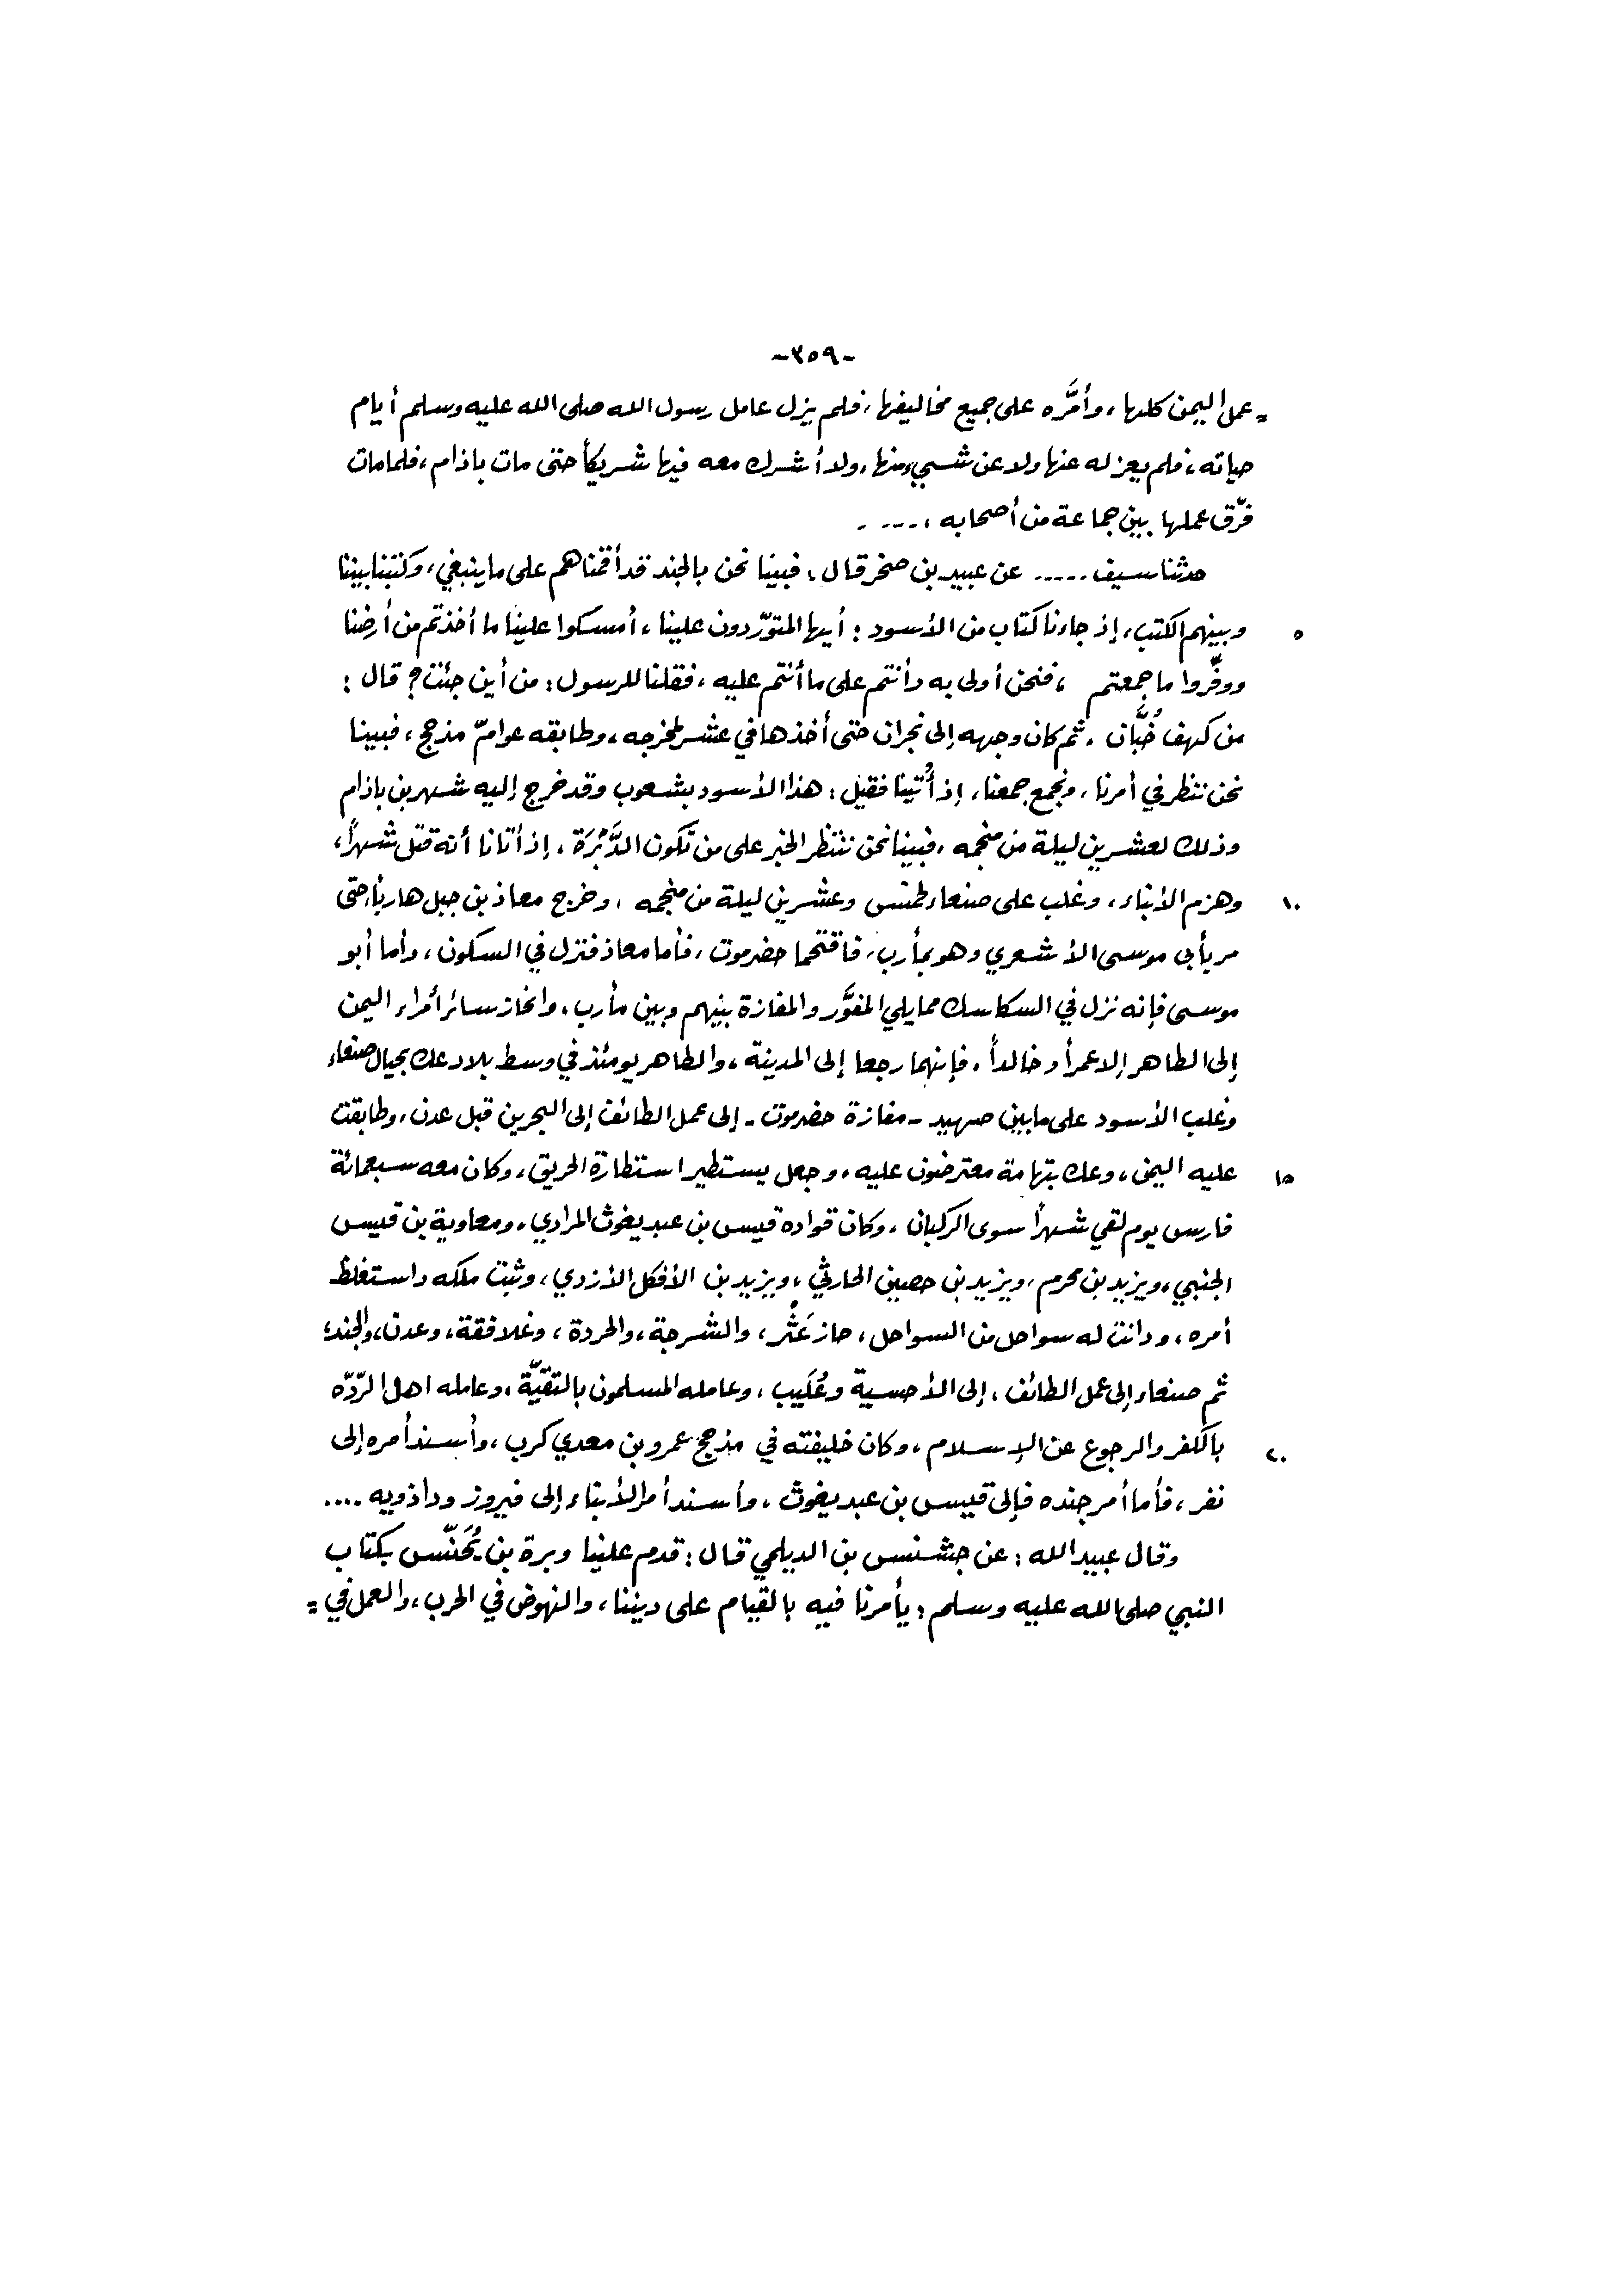 -٣٥٩-
= عمل اليمن كلها، وأمَّره على جميع مخاليفها، فلم يزل عامل رسول الله صلى الله عليه وسلم أيام
حياته، فلم يعزله عنها ولا عن شيء منها، ولا أشرك معه فيها شريكاً حتى مات باذام، فلما مات
فرّق عملها بين جماعة من أصحابه ، .... .
حدثنا سيف ..... عن عبيد بن صخر قال: فبينا نحن بالجند قد أقمناهم على ما ينبغي، وكتبنا بيننا
٥ وبينهم الكتب، إذ جاءنا كتاب من الأسود: أيها المتورّدون علينا، أمسكوا علينا ما أخذتم من أرضنا
ووفّروا ما جمعتم ، فنحن أولى به وأنتم على ما أنتم عليه، فقلنا للرسول: من أين جئت؟ قال:
من كهف خُبَّان، ثم كان وجهه إلى نجران حتى أخذها في عشر لمخرجه، وطابقه عوامّ مذحج، فبينا
نحن ننظر في أمرنا، ونجمع جمعنا، إذ أُتينا فقيل: هذا الأسود بشعوب وقد خرج إليه شهر بن باذام
وذلك لعشرين ليلة من منجمه، فبينا نحن ننتظر الخبر على من تكون الدَّبْرَة، إذ أتانا أنه قتل شهراً،
١٠ وهزم الأبناء، وغلب على صنعاء لخمس وعشرين ليلة من منجمه، وخرج معاذ بن جبل هارباً حتى
مر بأبي موسى الأشعري وهو بمأرب، فاقتحما حضرموت، فأما معاذ فنزل في السكون، وأما أبو
موسى فإنه نزل في السكاسك مما يلي المفوَّر والمفازة بينهم وبين مأرب، وانحاز سائر أمراء اليمن
إلى الطاهر إلا عمراً وخالداً، فإنهما رجعا إلى المدينة، والطاهر يومئذ في وسط بلاد عك بحيال صنعاء
وغلب الأسود على ما بين صهيد - مفازة حضرموت - إلى عمل الطائف إلى البحرين قبل عدن، وطابقت
١٥ عليه اليمن، وعك بتهامة معترضون عليه، وجعل يستطير استطارة الحريق، وكان معه سبعمائة
فارس يوم لقي شهراً سوى الركبان، وكان قواده قيس بن عبد يغوث المرادي، ومعاوية بن قيس
الجنبي، ويزيد بن محرم، ويزيد بن حصين الحارثي، ويزيد بن الأفكل الأزدي، وثبت ملكه واستغلظ
أمره، ودانت له سواحل من السواحل، حاز عَثْر، والشرجة، والحردة، وغلافقة، وعدن، والجند؛
ثم صنعاء إلى عمل الطائف، إلى الأحسية وعُلَيب، وعامله المسلمون بالتقيّة، وعامله اهل الرّدّه
٢٠ بالكفر والرجوع عن الإسلام، وكان خليفته في مذحج عمرو بن معدي كرب، وأسند أمره إلى
نفر، فأما أمر جنده فإلى قيس بن عبد يغوث، وأسند أمر الأبناء إلى فيروز وداذويه ....
وقال عبيد الله: عن جشنس بن الديلمي قال: قدم علينا وبرة بن يُحَنّس بكتاب
النبي صلى الله عليه وسلم: يأمرنا فيه بالقيام على ديننا، والنهوض في الحرب، والعمل في =